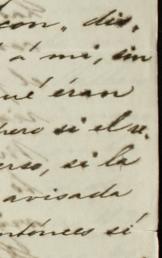 con, dis-
á mi, sin
qué éran
pero si el re-
erso, si la
avisada
entónces sí